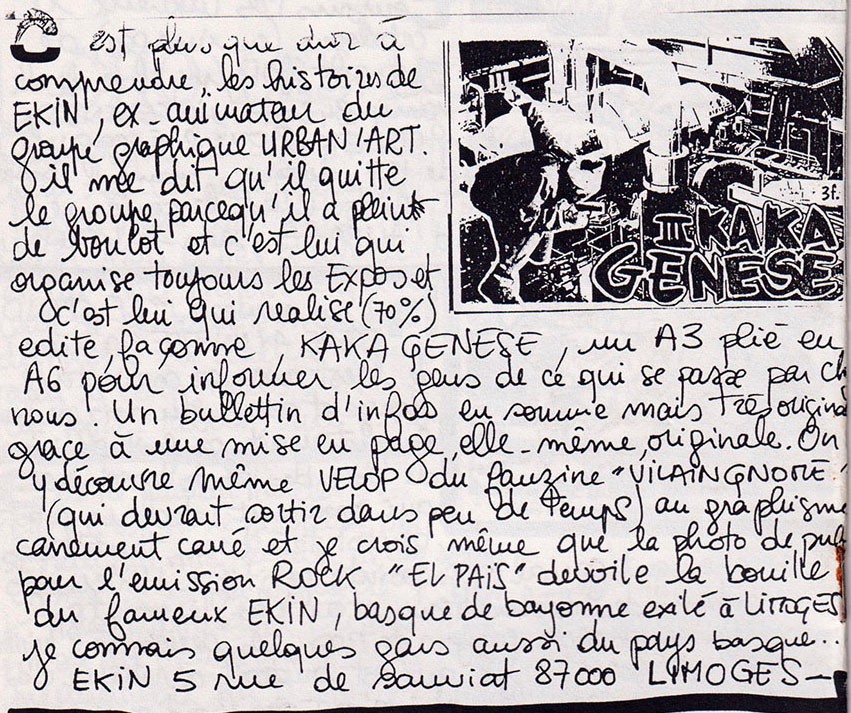 C est plus que dur à
comprendre les histoires de
EKIN, ex-animateur du
groupe graphique URBAN'ART.
il me dit qu'il quitte
le groupe parcequ'il a plein
de boulot et c'est lui qui
organise toujours les Expos et
c'est lui qui realise (70%)
edite, façonne, KAKA GENESE, un A3 plié en
A6 pour informer les gens de ce qui se passe par ch
nous. Un bulletin d'infos en somme mais très origina
grace à une mise en page, elle-même, originale. On
y découvre même VELOP du fanzine "VILAIN GNOME"
(qui devrait sortir dans peu de temps) au graphisme
carrement carré et je crois même que la photo de pub
pour l'emission ROCK "EL PAIS" devoile la bouille
du fameux EKIN, basque de bayonne exilé à LIMOGES
je connais quelques gars aussi du pays basque...
EKIN 5 rue de sauviat 87000 LIMOGES -
3f.
III KAKA
GENESE